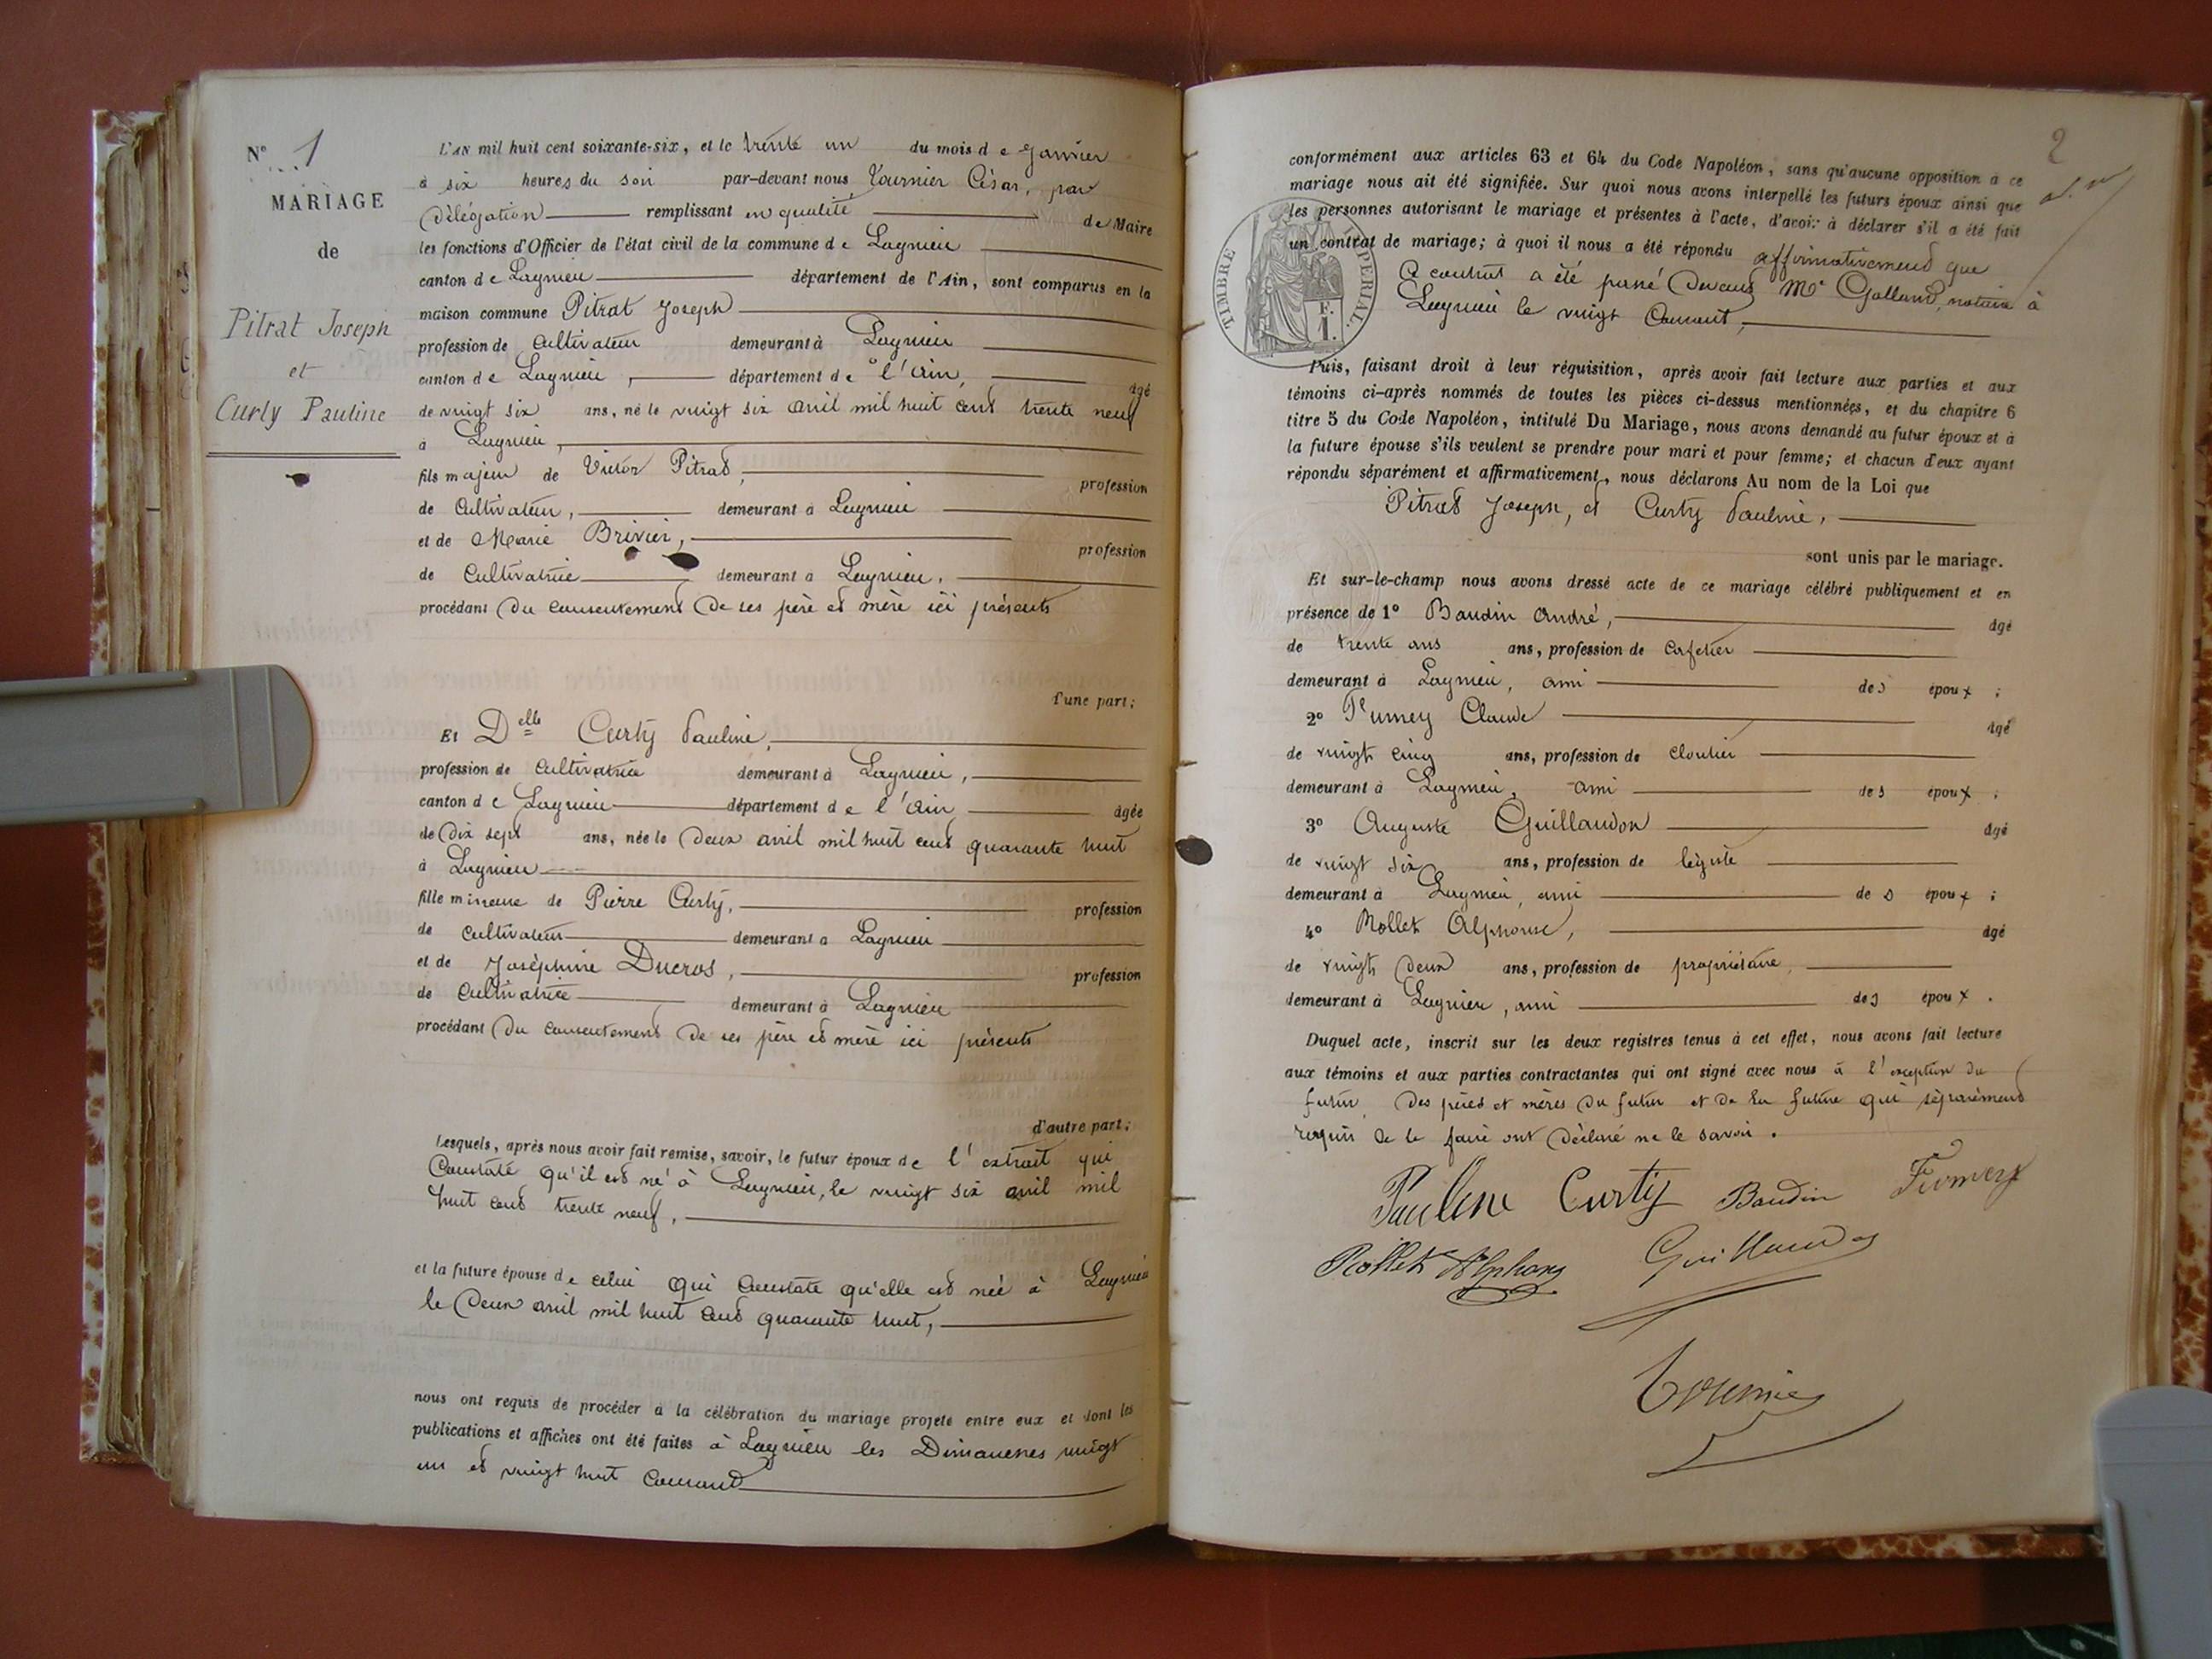 N° 1
MARIAGE
de
Pitrat Joseph
et
Curty Pauline
L'AN mil huit cent soixante-six, et le trente un du mois de Janvier
à six heures du soir par-devant nous Tournier César, par
Délégation remplissant en qualité de Maire
les fonctions d'Officier de l'état civil de la commune de Lagnieu
canton de Lagnieu département de l'Ain, sont comparus en la
maison commune Pitrat Joseph
profession de Cultivateur demeurant à Lagnieu
canton de Lagnieu, département de l'Ain, âgé
de vingt six ans, né le vingt six avril mil huit cent trente neuf
à Lagnieu,
fils majeur de Victor Pitrat, profession
de Cultivateur, demeurant à Lagnieu
et de Marie Brivier, profession
de Cultivatrice demeurant à Lagnieu,
procédant du consentement de ses père et mère ici présents
d'une part;
Et Delle Curty Pauline,
profession de Cultivatrice demeurant à Lagnieu,
canton de Lagnieu département de l'Ain âgée
de Dix sept ans, née le Deux avril mil huit cent quarante huit
à Lagnieu
fille mineure de Pierre Curty, profession
de Cultivateur demeurant à Lagnieu
et de Joséphine Ducros, profession
de Cultivatrice demeurant à Lagnieu
procédant du consentement de ses père et mère ici présents
d'autre part;
Lesquels, après nous avoir fait remise, savoir, le futur époux de l'extrait qui
Constate qu'il est né à Lagnieu, le vingt six avril mil
huit cent trente neuf,
et la future épouse de celui qui Constate qu'elle est née à Lagnieu
le Deux avril mil huit cent quarante huit,
nous ont requis de procéder à la célébration du mariage projeté entre eux et dont les
publications et affiches ont été faites à Lagnieu les Dimanches vingt
un et vingt huit Courant
2
conformément aux articles 63 et 64 du Code Napoléon, sans qu'aucune opposition à ce
mariage nous ait été signifiée. Sur quoi nous avons interpellé les futurs époux ainsi que
les personnes autorisant le mariage et présentes à l'acte, d'avoir à déclarer s'il a été fait
un contrat de mariage; à quoi il nous a été répondu affirmativement que
Ce contrat a été passé devant Me Galland, notaire à
Lagnieu le vingt Courant,
TIMBRE IMPERIAL.
F.
1.
Puis, faisant droit à leur réquisition, après avoir fait lecture aux parties et aux
témoins ci-après nommés de toutes les pièces ci-dessus mentionnées, et du chapitre 6
titre 5 du Code Napoléon, intitulé Du Mariage, nous avons demandé au futur époux et à
la future épouse s'ils veulent se prendre pour mari et pour femme; et chacun d'eux ayant
répondu séparément et affirmativement, nous déclarons Au nom de la Loi que
Pitrat Joseph, et Curty Pauline,
sont unis par le mariage.
Et sur-le-champ nous avons dressé acte de ce mariage célébré publiquement et en
présence de 1° Baudin André, âgé
de trente ans ans, profession de Cafetier
demeurant à Lagnieu, ami des époux ;
2° Claude âgé
de vingt cinq ans, profession de cloutier
demeurant à Lagnieu, ami des époux ;
3° Auguste Guillaudon âgé
de vingt six ans, profession de légiste
demeurant à Lagnieu, ami des époux ;
4° Rollet Alphonse, âgé
de vingt deux ans, profession de propriétaire,
demeurant à Lagnieu, ami des époux .
Duquel acte, inscrit sur les deux registres tenus à cet effet, nous avons fait lecture
aux témoins et aux parties contractantes qui ont signé avec nous à l'exception du
futur, des pères et mères du futur et de la future qui séparément
requis de le faire ont déclaré ne le savoir.
Pauline Curty Baudin
Rollet Alphons Guillaudon
Tournier